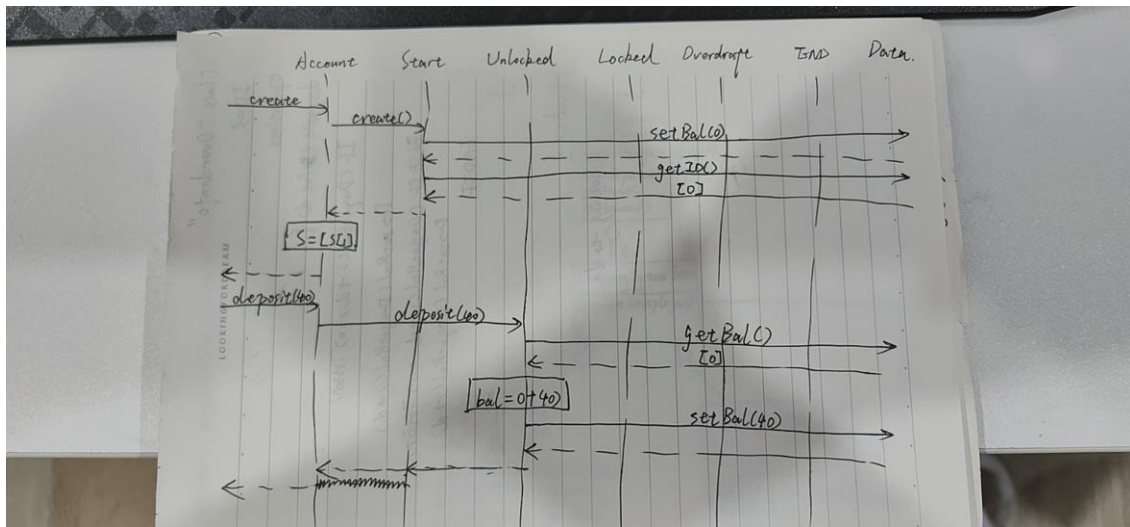 Account Start Unlocked Locked Overdraft END Data.
create
create()
setBal(0)
getID()
[0]
S=[S[1]
deposit(40)
deposit(40)
getBal()
[0]
bal=0+40
setBal(40)
LOOKINGFORDREAM